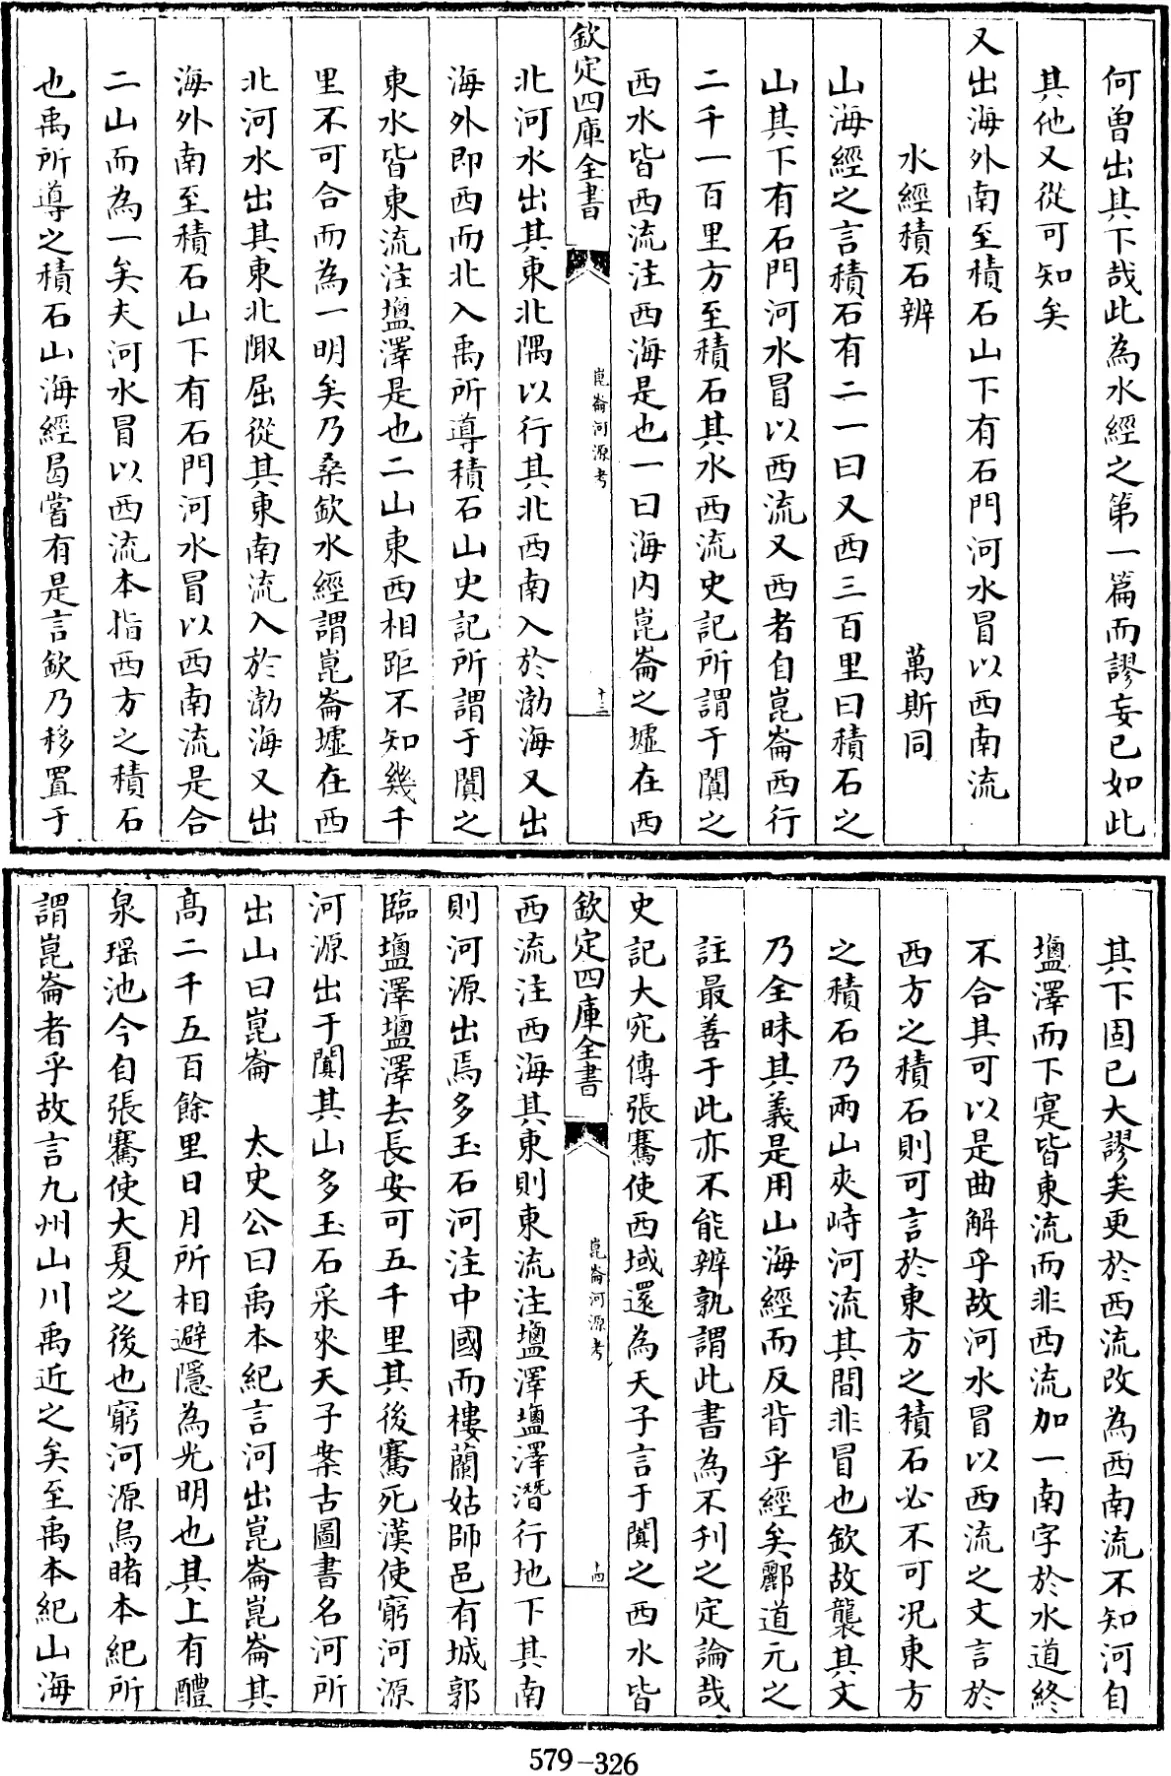 何曽出其下哉此為水經之第一篇而謬妄已如此
其他又從可知矣
又出海外南至積石山下有石門河水冒以西南流
水經積石辨　萬斯同
山海經之言積石有二一曰又西三百里曰積石之
山其下有石門河水冒以西流又西者自崑崙西行
二千一百里方至積石其水西流史記所謂于闐之
西水皆西流注西海是也一曰海内崑崙之墟在西
欽定四庫全書　崑崙河源考　十三
北河水出其東北隅以行其北西南入於渤海又出
海外即西而北入禹所導積石山史記所謂于闐之
東水皆東流注鹽澤是也二山東西相距不知幾千
里不可合而為一明矣乃桑欽水經謂崑崙墟在西
北河水出其東北陬屈從其東南流入於渤海又出
海外南至積石山下有石門河水冒以西南流是合
二山而為一矣夫河水冒以西流本指西方之積石
也禹所導之積石山海經曷嘗有是言欽乃移置于
其下固已大謬矣更於西流改為西南流不知河自
鹽澤而下寔皆東流而非西流加一南字於水道終
不合其可以是曲解乎故河水冒以西流之文言於
西方之積石則可言於東方之積石必不可況東方
之積石乃兩山夾峙河流其間非冒也欽故襲其文
乃全昧其義是用山海經而反背乎經矣酈道元之
註最善于此亦不能辨孰謂此書為不刋之定論哉
史記大宛傳張騫使西域還為天子言于闐之西水皆
欽定四庫全書　崑崙河源考　十四
西流注西海其東則東流注鹽澤鹽澤潛行地下其南
則河源出焉多玉石河注中國而樓蘭姑師邑有城郭
臨鹽澤鹽澤去長安可五千里其後騫死漢使窮河源
河源出于闐其山多玉石采來天子案古圖書名河所
出山曰崑崙　太史公曰禹本紀言河出崑崙崑崙其
高二千五百餘里日月所相避隱為光明也其上有醴
泉瑶池今自張騫使大夏之後也窮河源烏睹本紀所
謂崑崙者乎故言九州山川禹近之矣至禹本紀山海
579-326